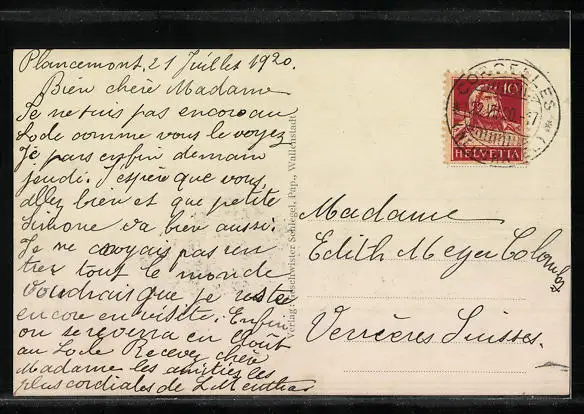 Plancemont, 21 Juillet 1920.
Bien chère Madame
Je ne suis pas encore au
Locle comme vous le voyez
Je pars enfin demain
jeudi. J'espère que vous
allez bien et que petite
Simone va bien aussi.
Je ne croyais pas ren
trer tout le monde
voudrais que je reste
encore en visite. Enfin
on se reverra en Août
au Locle Recevez chère
Madame les amitiés les
plus cordiales de L.
Verlag Geschwister Schlegel, Pap., Wallenstadt
CORCELLES
10
HELVETIA
Madame
Edith Meyer Colomb
Verrières Suisses.